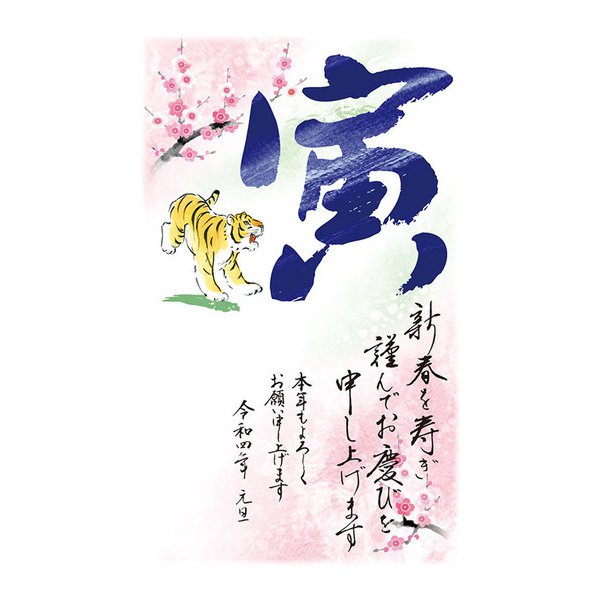 寅
新春を寿ぎ
謹んでお慶びを
申し上げます
本年もよろしく
お願い申し上げます
令和四年 元旦